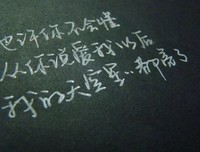 也许你不会懂
从你说爱我以后
我的天空星..都亮了